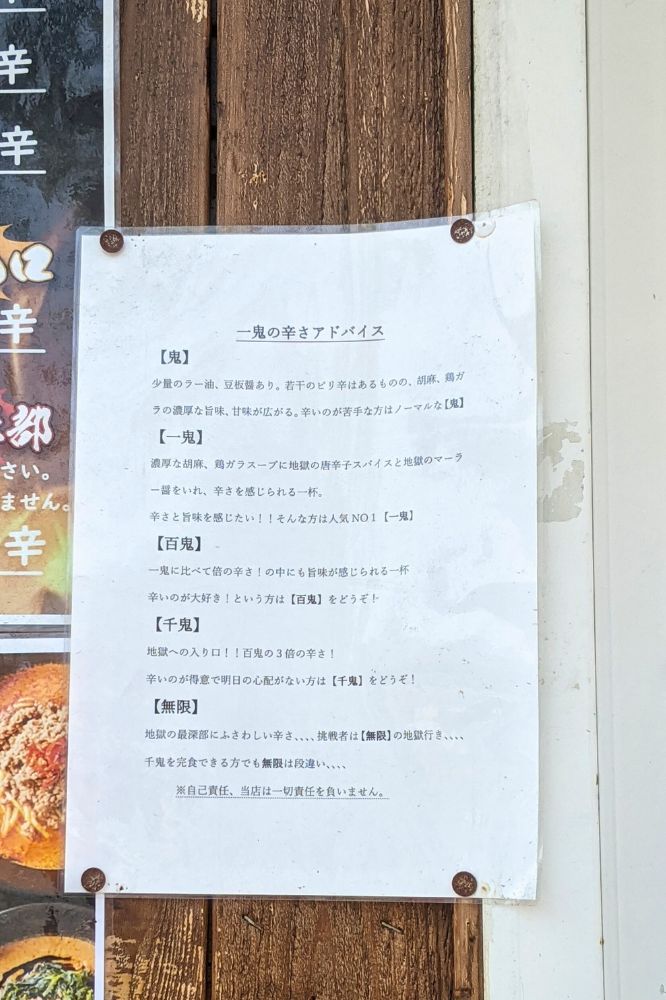 辛
辛
口
辛
部
さい。
ません。
辛
一鬼の辛さアドバイス
【鬼】
少量のラー油、豆板醤あり。若干のピリ辛はあるものの、胡麻、鶏ガ
ラの濃厚な旨味、甘味が広がる。辛いのが苦手な方はノーマルな【鬼】
【一鬼】
濃厚な胡麻、鶏ガラスープに地獄の唐辛子スパイスと地獄のマーラ
ー醤をいれ、辛さを感じられる一杯。
辛さと旨味を感じたい！！そんな方は人気NO1【一鬼】
【百鬼】
一鬼に比べて倍の辛さ！の中にも旨味が感じられる一杯
辛いのが大好き！という方は【百鬼】をどうぞ！
【千鬼】
地獄への入り口！！百鬼の３倍の辛さ！
辛いのが得意で明日の心配がない方は【千鬼】をどうぞ！
【無限】
地獄の最深部にふさわしい辛さ、、、、挑戦者は【無限】の地獄行き、、、、
千鬼を完食できる方でも無限は段違い、、、、
※自己責任、当店は一切責任を負いません。